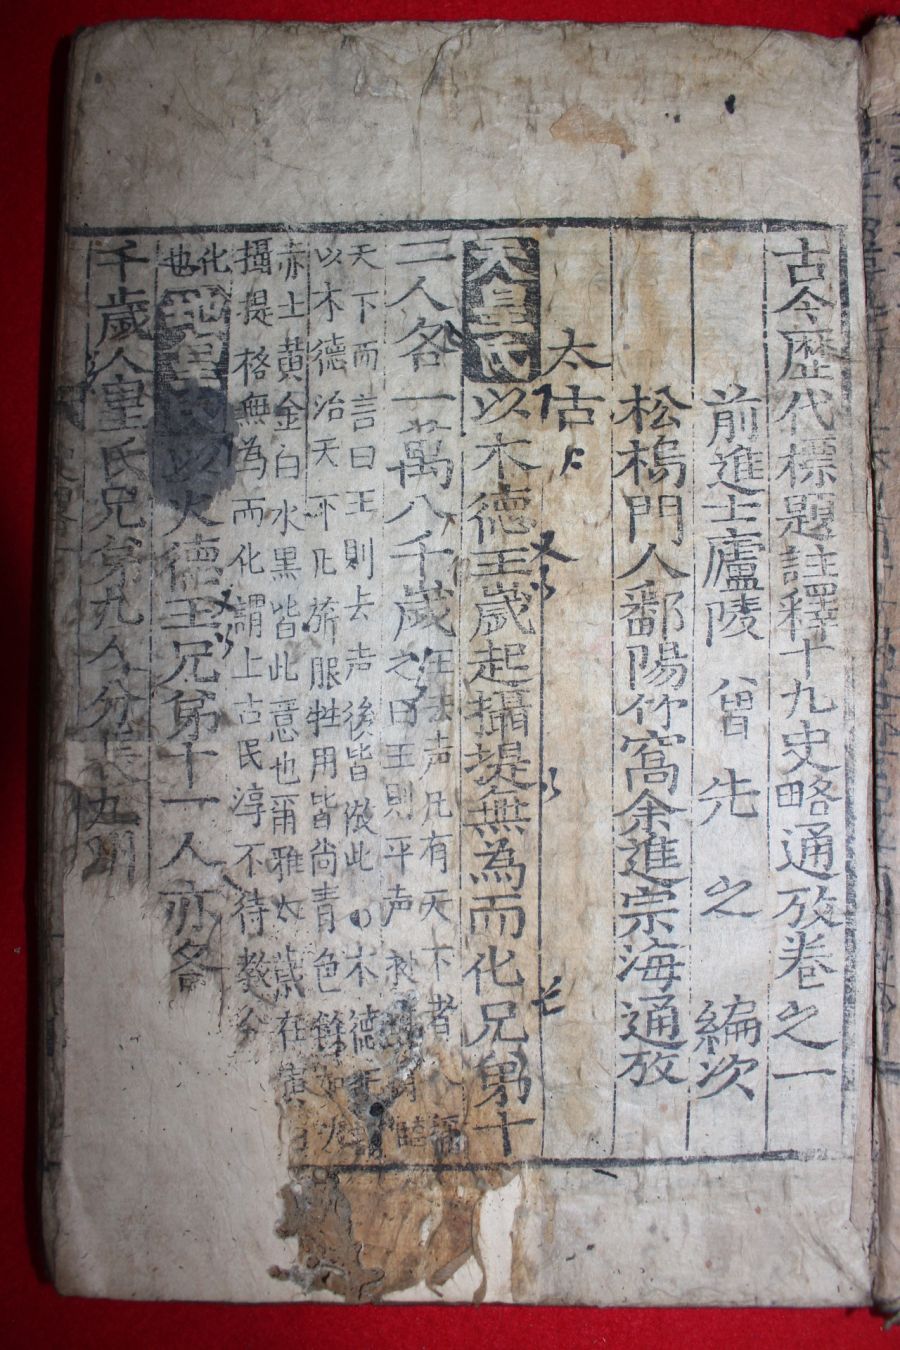 古今歷代標題註釋十九史略通攷卷之一
前進士廬陵 曾先之 編次
松塢門人鄱陽竹窩余進宗海通攷
太古
天皇氏以木德王歲起攝提無為而化兄弟十
二人各一萬八千歲 王去声凡有天下者
之曰王則平声
天下而言曰王則去声後皆倣此 木德王
以木德治天下凡旂服牲用皆尚青色餘如
赤土黄金白水黑皆此意也爾雅太歲在寅曰
攝提格無為而化謂上古民淳不待教令
化
也 地皇氏以火德王兄弟十一人亦各
千歲人皇氏兄弟九人分長九州